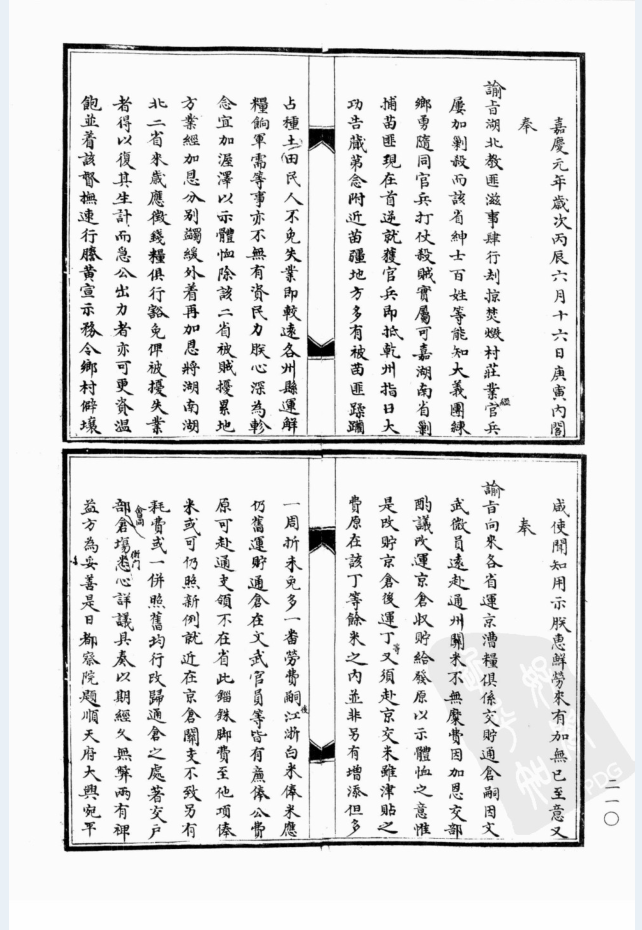 嘉慶元年歲次丙辰六月十六日庚寅內閣
奉
諭旨湖北教匪滋事肆行刦掠焚燬村莊業經官兵
屢加剿殺而該省紳士百姓等能知大義團練
鄉勇隨同官兵打仗殺賊實屬可嘉湖南省剿
捕苗匪現在首逆就獲官兵即抵乾州指日大
功告蕆第念附近苗疆地方多有被苗匪蹂躪
占種土田民人不免失業即較遠各州縣運解
糧餉軍需等事亦不無有資民力朕心深為軫
念宜加渥澤以示體恤除該二省被賊擾累地
方業經加恩分別蠲緩外着再加恩將湖南湖
北二省來歲應徵錢糧俱行豁免俾被擾失業
者得以復其生計而急公出力者亦可更資温
飽並着該督撫速行謄黄宣示務令鄉村僻壤
咸使聞知用示朕惠鮮勞來有加無已至意又
奉
諭旨向來各省運京漕糧俱係交貯通倉嗣因文
武微員遠赴通州關米不無糜費因加恩交部
酌議改運京倉收貯給發原以示體恤之意惟
是改貯京倉後運丁等又須赴京交米雖津貼之
費原在該丁等餘米之内並非另有增添但多
一周折未免多一番勞費嗣後江浙白米俸米應
仍舊運貯通倉在文武官員等皆有廉俸公費
原可赴通支領不在省此錙銖脚費至他項俸
米或可仍照新例就近在京倉關支不致另有
耗費或一併照舊均行改歸通倉之處著交戶
部會同倉場衙門悉心詳議具奏以期經久無弊兩有裨
益方為妥善是日都察院題順天府大興宛平
二一〇